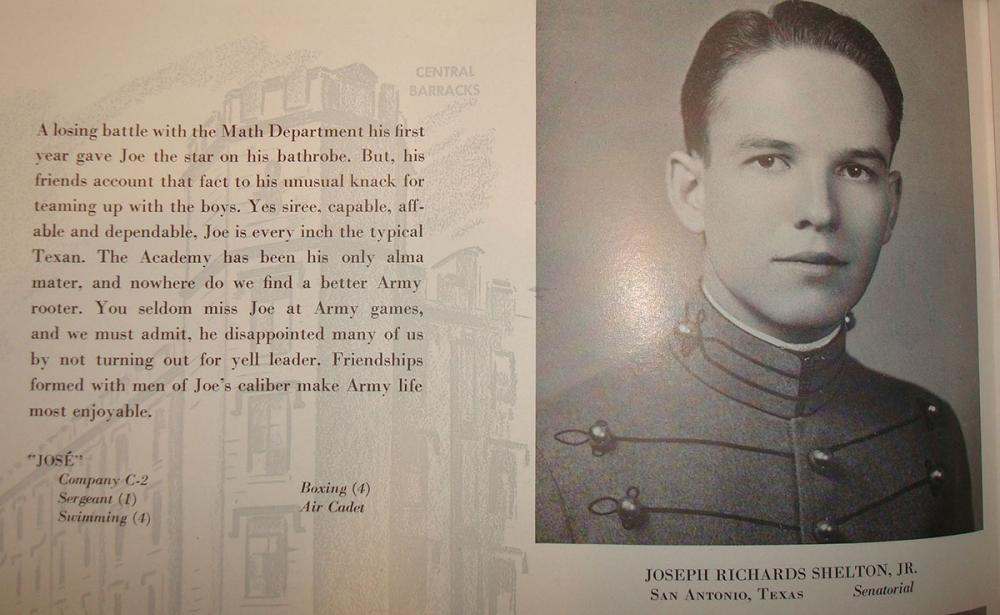 CENTRAL
BARRACKS
A losing battle with the Math Department his first
year gave Joe the star on his bathrobe. But, his
friends account that fact to his unusual knack for
teaming up with the boys. Yes siree, capable, aff-
able and dependable, Joe is every inch the typical
Texan. The Academy has been his only alma
mater, and nowhere do we find a better Army
rooter. You seldom miss Joe at Army games,
and we must admit, he disappointed many of us
by not turning out for yell leader. Friendships
formed with men of Joe's caliber make Army life
most enjoyable.
"JOSÉ"
Company C-2
Sergeant (1)
Swimming (4)
Boxing (4)
Air Cadet
JOSEPH RICHARDS SHELTON, JR.
San Antonio, Texas Senatorial